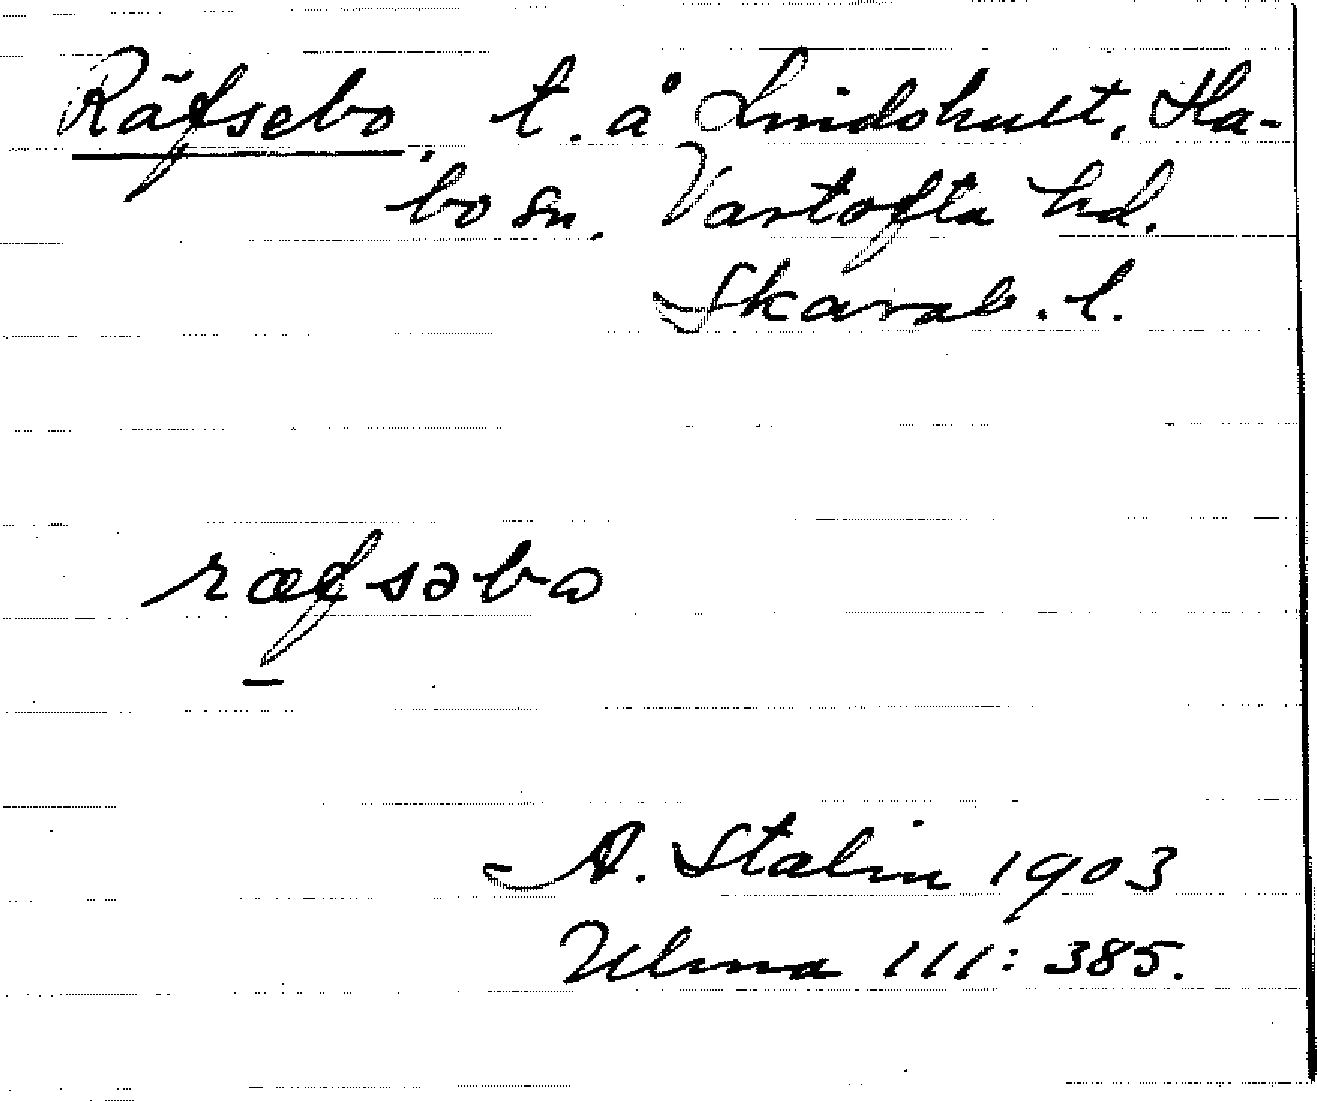 Räfsebo, t. å Lindshult, Ha-
bo sn. Vartofta hd.
Skarab. l.
ræfsəbo
A. Stalin 1903
Ulma 111: 385.